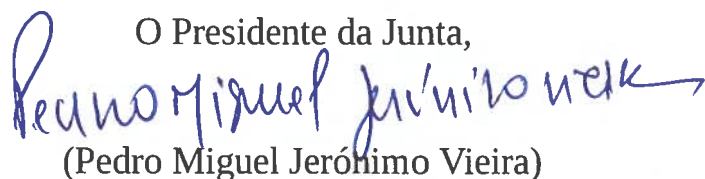 O Presidente da Junta,
Pedro Miguel Jerónimo Vieira
(Pedro Miguel Jerónimo Vieira)